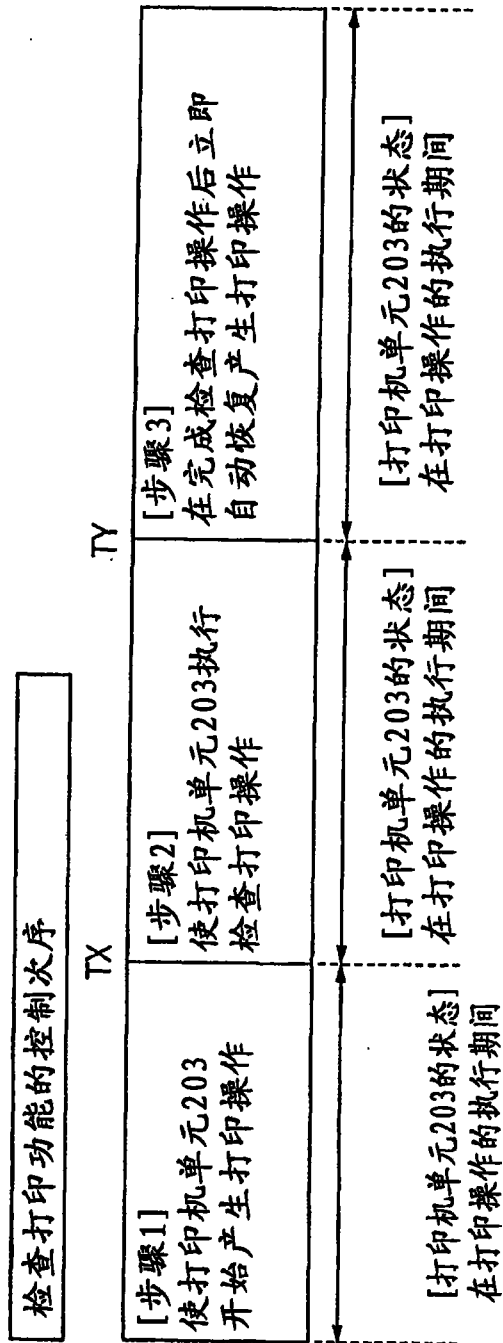 检查打印功能的控制次序
TX
TY
[步骤1]
使打印机单元203
开始产生打印操作
[步骤2]
使打印机单元203执行
检查打印操作
[步骤3]
在完成检查打印操作后立即
自动恢复产生打印操作
[打印机单元203的状态]
在打印操作的执行期间
[打印机单元203的状态]
在打印操作的执行期间
[打印机单元203的状态]
在打印操作的执行期间